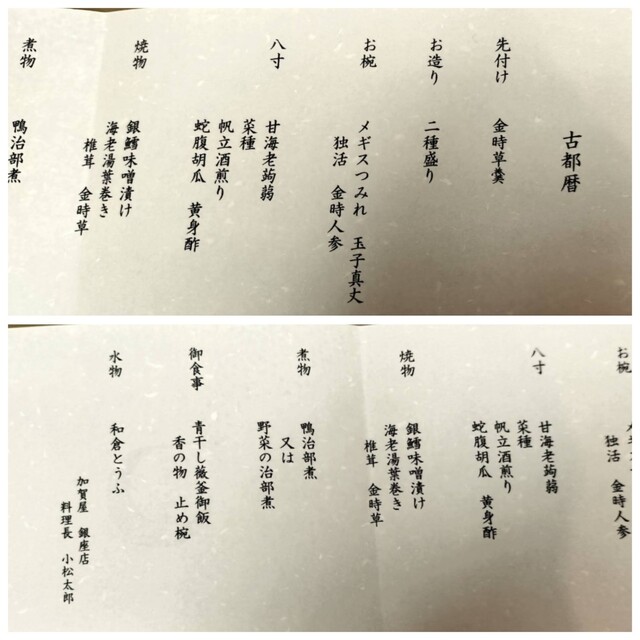 古都暦
先付け 金時草羹
お造り 二種盛り
お椀 メギスつみれ 玉子真丈
独活 金時人参
八寸 甘海老蒟蒻
菜種
帆立酒煎り
蛇腹胡瓜 黄身酢
焼物 銀鱈味噌漬け
海老湯葉巻き
椎茸 金時草
煮物 鴨治部煮
お椀 メギスつ
独活 金時人参
八寸 甘海老蒟蒻
菜種
帆立酒煎り
蛇腹胡瓜 黄身酢
焼物 銀鱈味噌漬け
海老湯葉巻き
椎茸 金時草
煮物 鴨治部煮
又は
野菜の治部煮
御食事 青干し薇釜御飯
香の物 止め椀
水物 和倉とうふ
加賀屋 銀座店
料理長 小松太郎